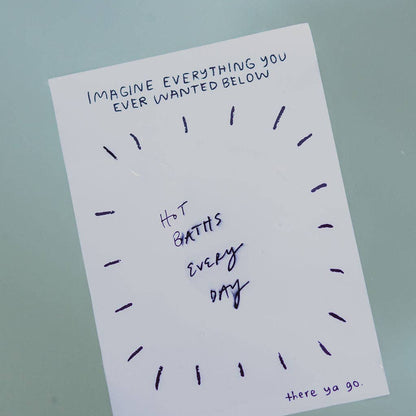 IMAGINE EVERYTHING YOU
EVER WANTED BELOW
HOT
BATHS
EVERY
DAY
there ya go.